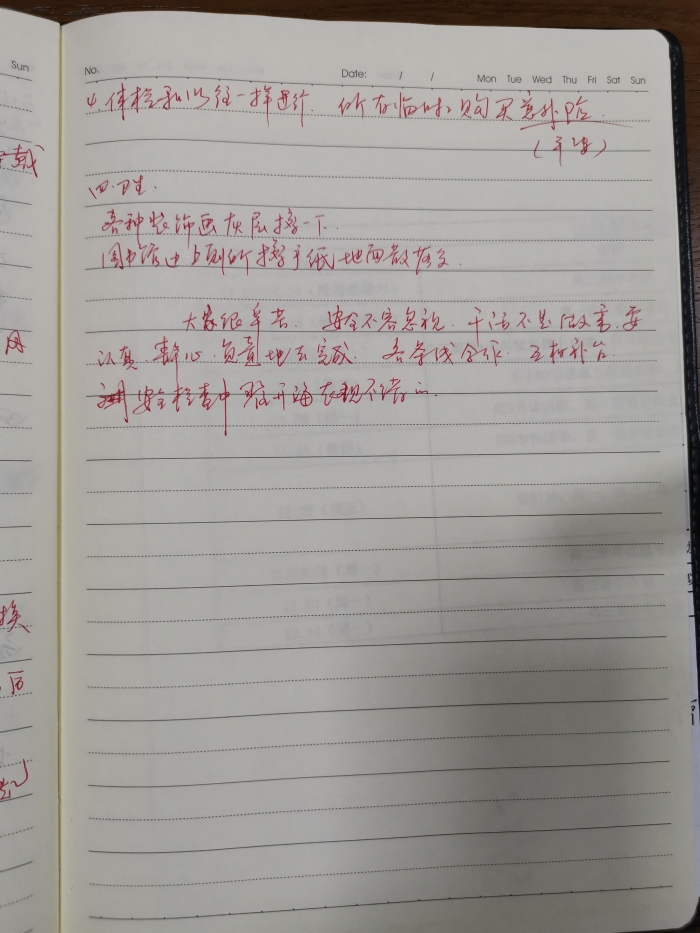 Sun
No.
Date: / /
Mon Tue Wed Thu Fri Sat Sun
4. 体检和以往一样进行. 所有临时工购买意外险.
载
四.卫生.
各种装饰画灰尘擦一下.
图书馆边上厕所擦手纸地面散落多.
大家很辛苦. 安全不容忽视. 干活不是做事, 要
认真. 静心. 负责地去完成. 各条线合作. 互相补台.
安全检查中 开海表现不错的.
换